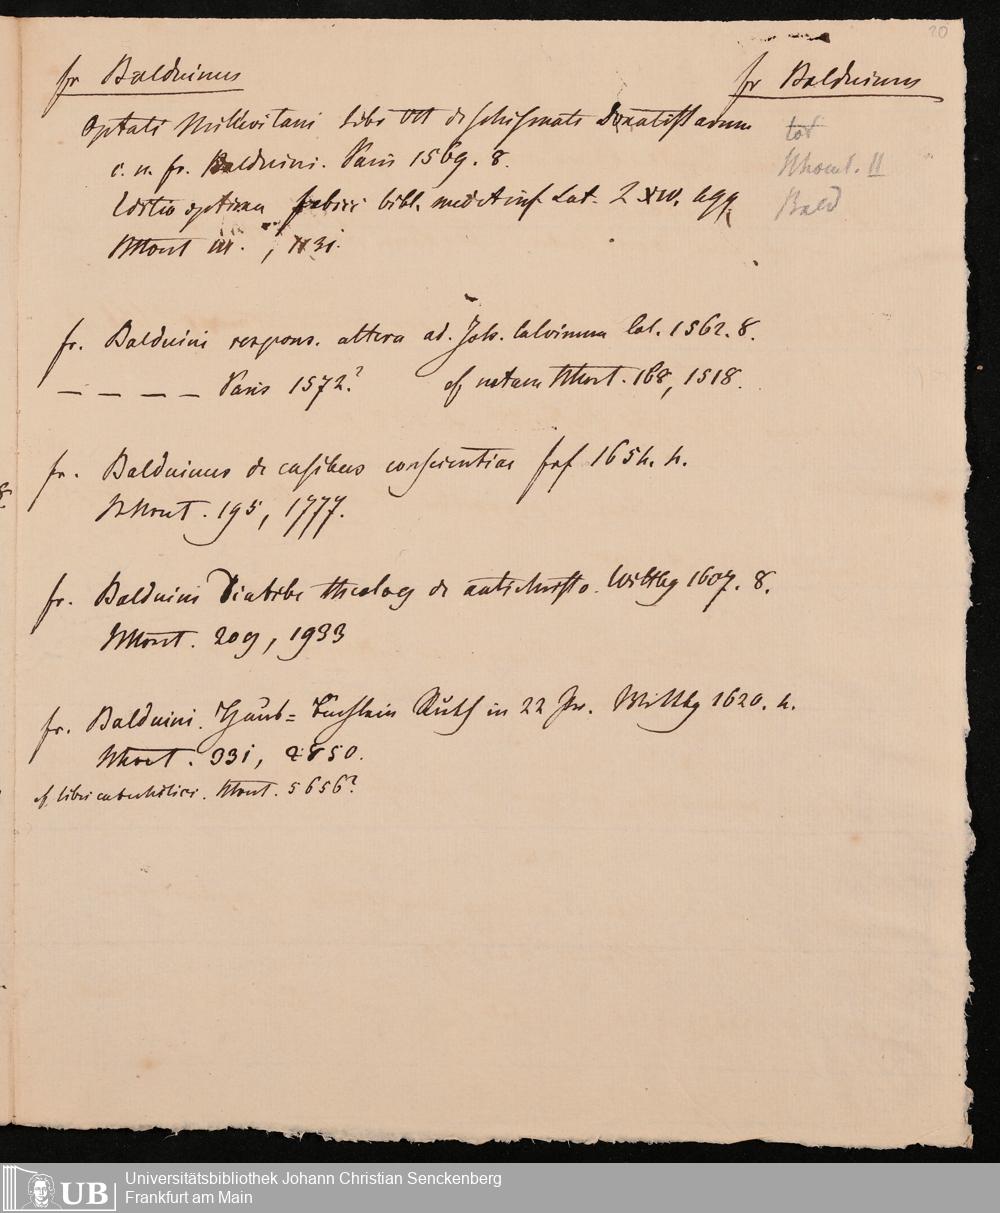 20
fr Balduinus
fr Balduinus
Optati Milevitani Libri VII de schismate Donatistarum
c. n. fr. Balduini. Paris 1569. 8.
Editio optima fabrici bibl. med et inf Lat.
III. 1131.
tot
II
Bald
fr. Balduini respons. altera ad. Joh. Calvinum Col. 1562. 8.
— — — — Paris 1572? cf notam 168, 1518.
fr. Balduinus de casibus conscientiae frf 1654. 4.
195, 1777.
fr. Balduini Diatribe theolog de antichristo. Wittbg 1607. 8.
209, 1933
fr. Balduini. Haus= Büchlein Ruth in 22 Pr. Wittbg 1620. 4.
331, 2850.
cf libri catechetici. 5656?
UB
Universitätsbibliothek Johann Christian Senckenberg
Frankfurt am Main